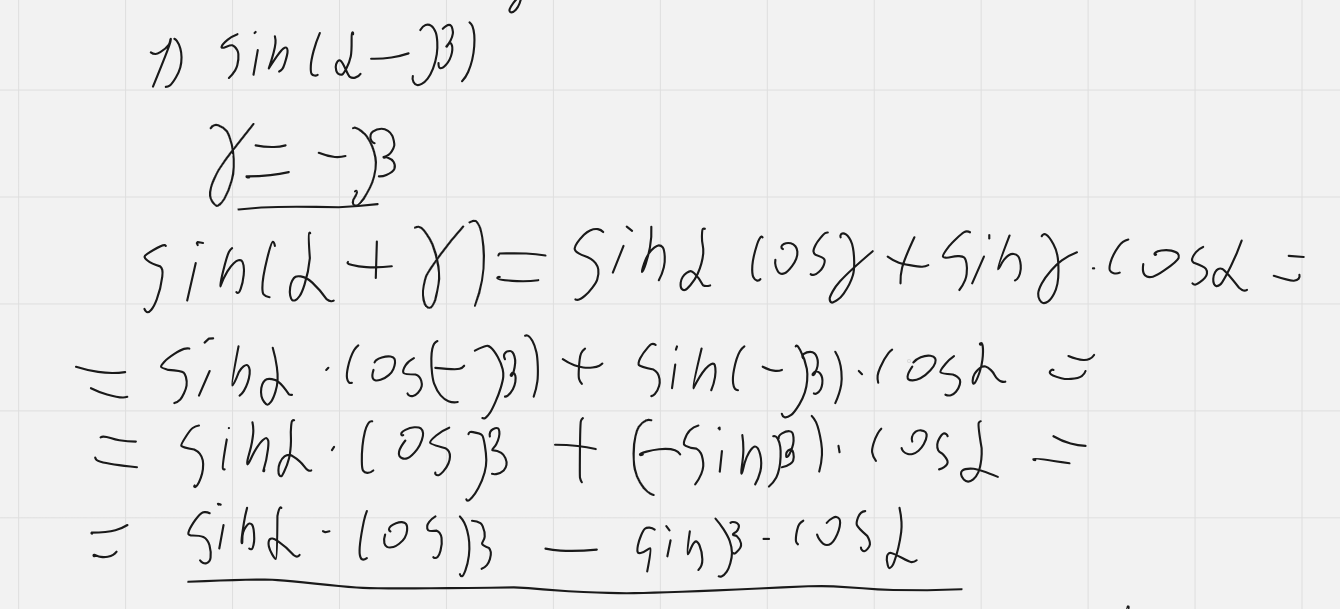 1) sin(α-β)
γ = -β
sin(α + γ) = sinα cosγ + sinγ · cosα =
= sinα · cos(-β) + sin(-β) · cosα =
= sinα · cosβ + (-sinβ) · cosα =
= sinα · cosβ - sinβ · cosα